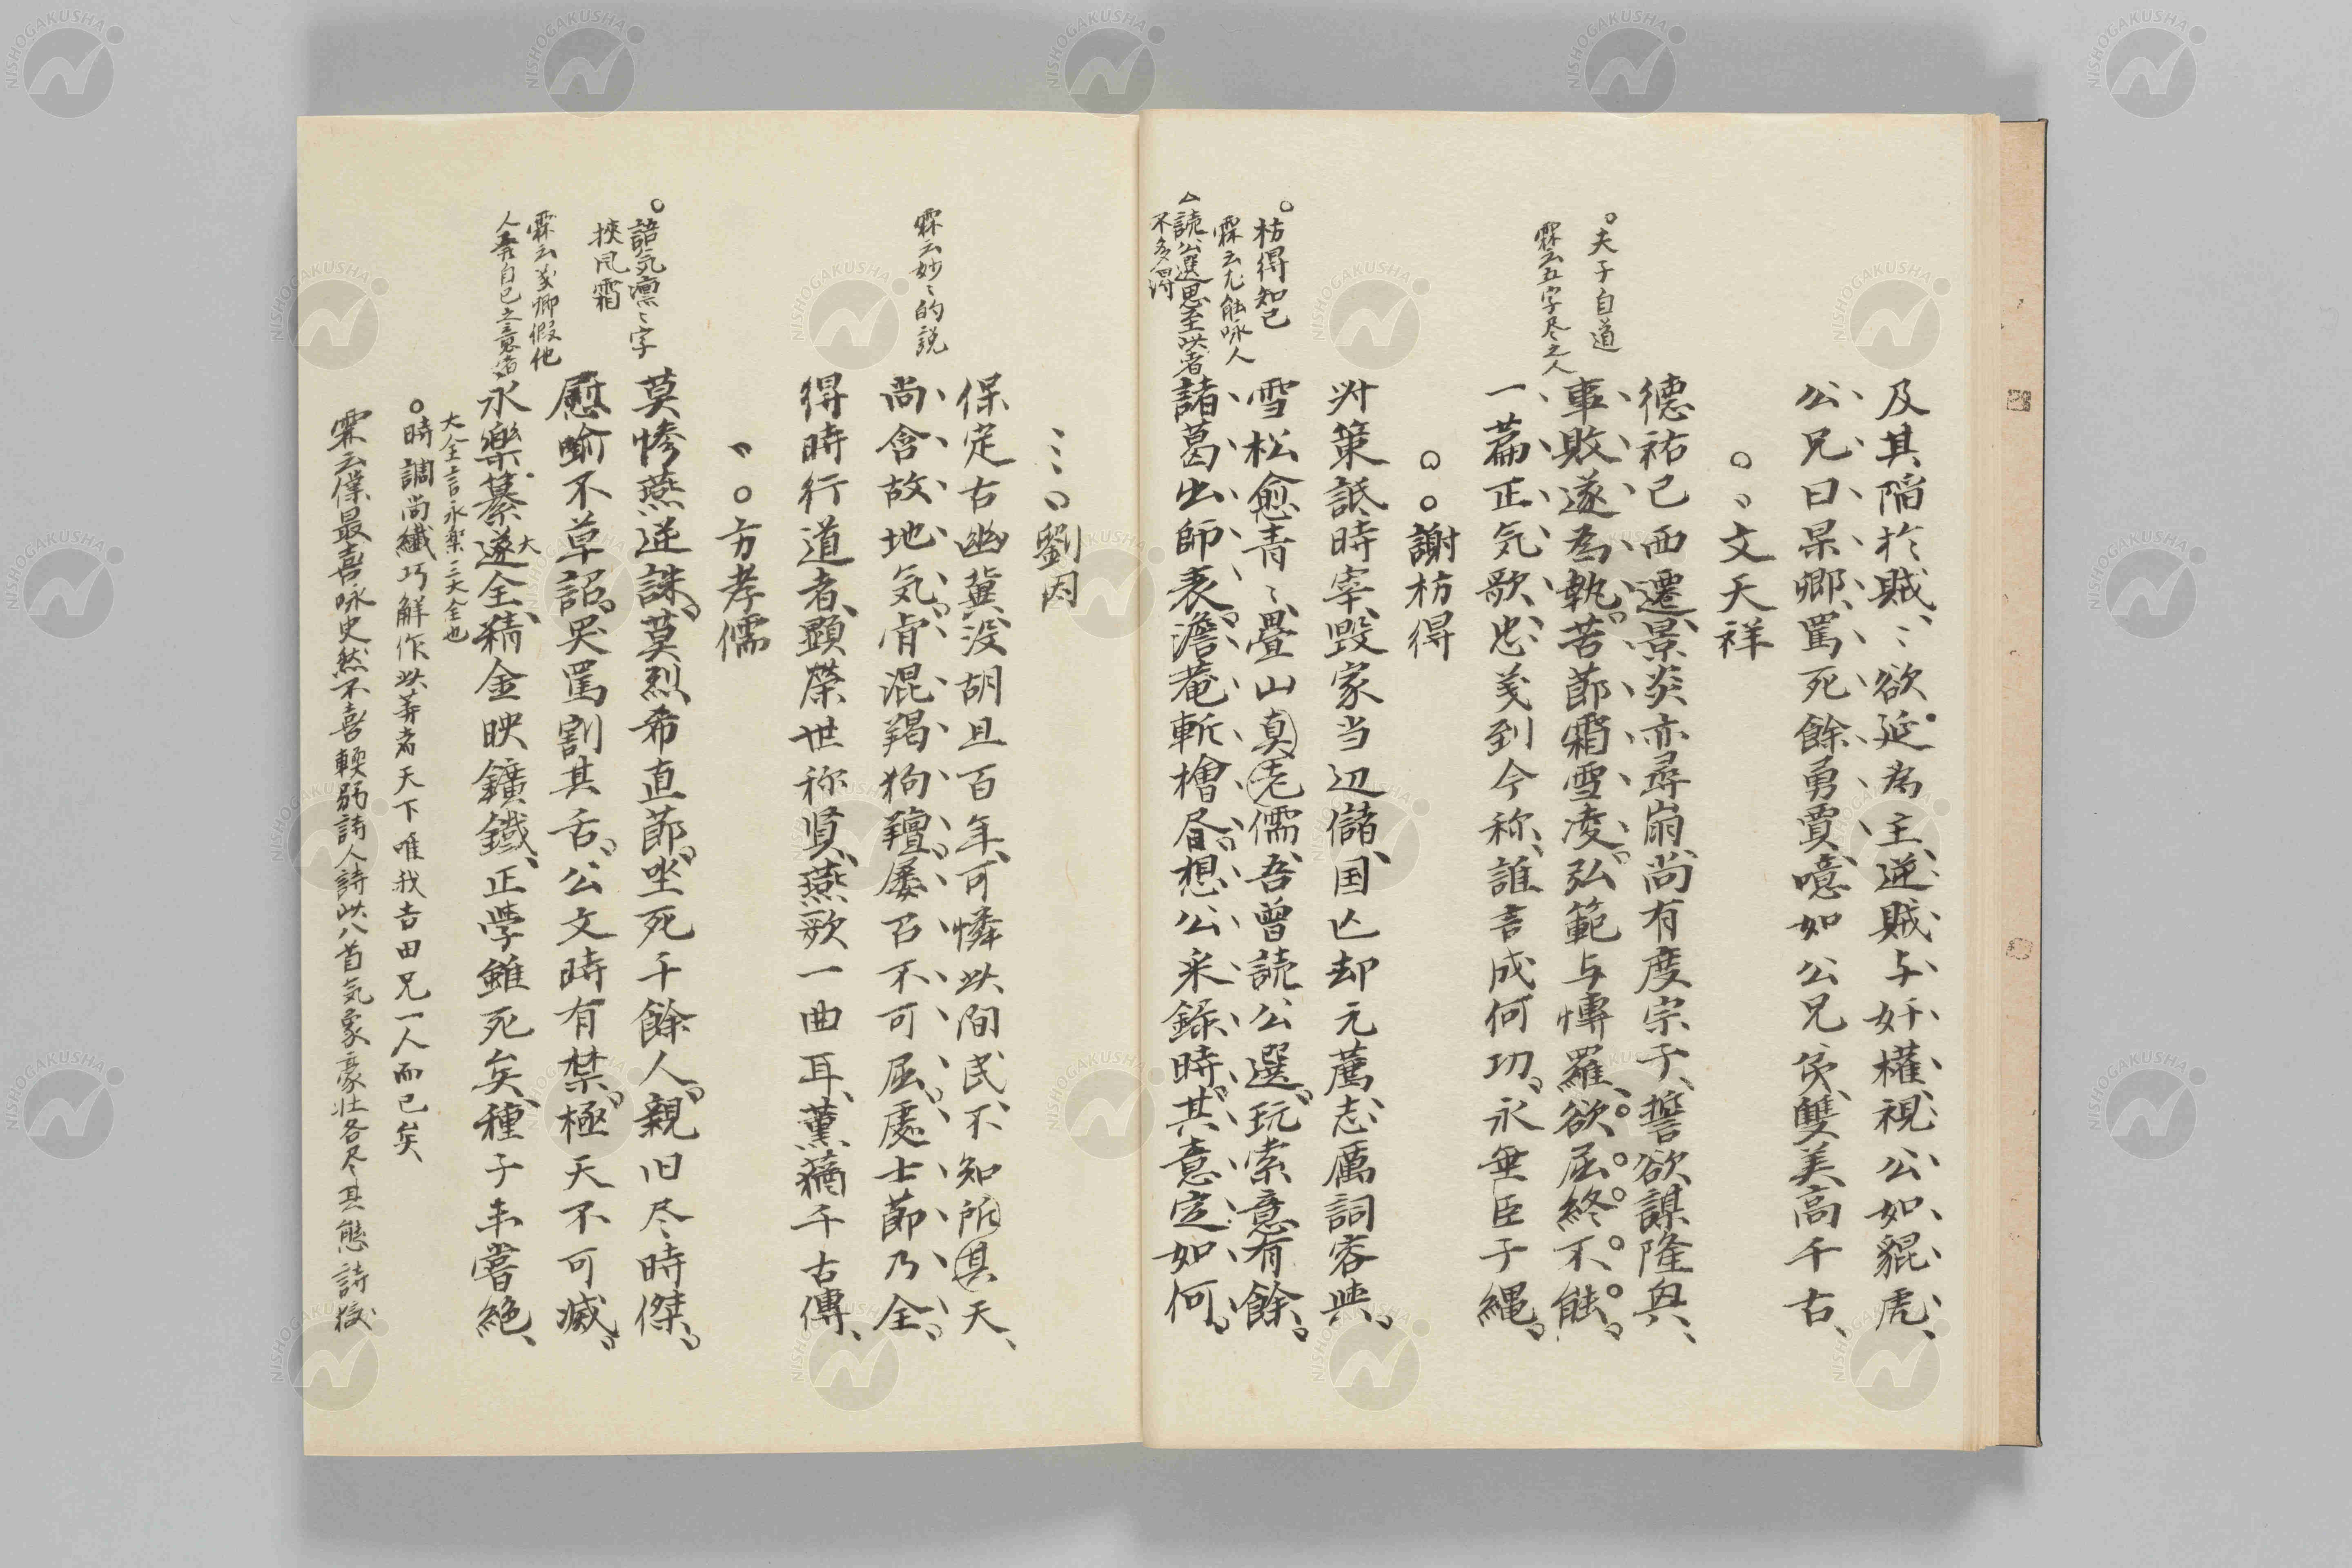 及其陷於賊、ミ欲延為主、逆賊与奸權、視公如貔虎、
公兄曰杲卿、罵死餘勇賈、噫如公兄弟、雙美高千古、
文天祥
德祐已西遷、景炎亦尋崩、尚有度宗子、誓欲謀隆興、
。夫子自道
事敗遂為執、苦節霜雪凌、弘範与愽羅、欲屈終不能、
霖云五字尽之人
一篇正気歌、忠義到今称、誰言成何功、永無臣子縄、
謝枋得
対策詆時宰、毀家当辺儲、国亡却元薦、志厲詞容與、
。枋得知己
霖云尤能咏人
雪松愈青ミ、疊山真老儒、吾曾読公選、玩索意有餘、
△読公選思至此者
不多得
諸葛出師表、澹菴斬檜届、想公采錄時、其意定如何、
劉因
保定古幽冀、没胡且百年、可憐此間民、不知所其天、
霖云妙ミ的説
尚含故地気、肯混羯狗羶、屡召不可屈、處士節乃全、
得時行道者、顕榮世称贤、燕歌一曲耳、薫蕕千古傳、
方孝儒
莫惨燕逆誅、莫烈希直節、坐死千餘人、親旧尽時傑、
。語気凛ミ字
挾風霜
慰喻不草詔、哭罵割其舌、公文時有禁、極天不可滅、
霖云義卿假他
人吾自己之意者
永樂纂遂大全、精金映鑛鐵、正学雖死矣、種子未嘗絶、
大全言永樂三大全也
。時調尚纖巧解作此等者天下唯我吉田兄一人而已矣、
霖云僕最喜咏史然不喜輭弱詩人詩此八首気象豪壮各尽其態詩授